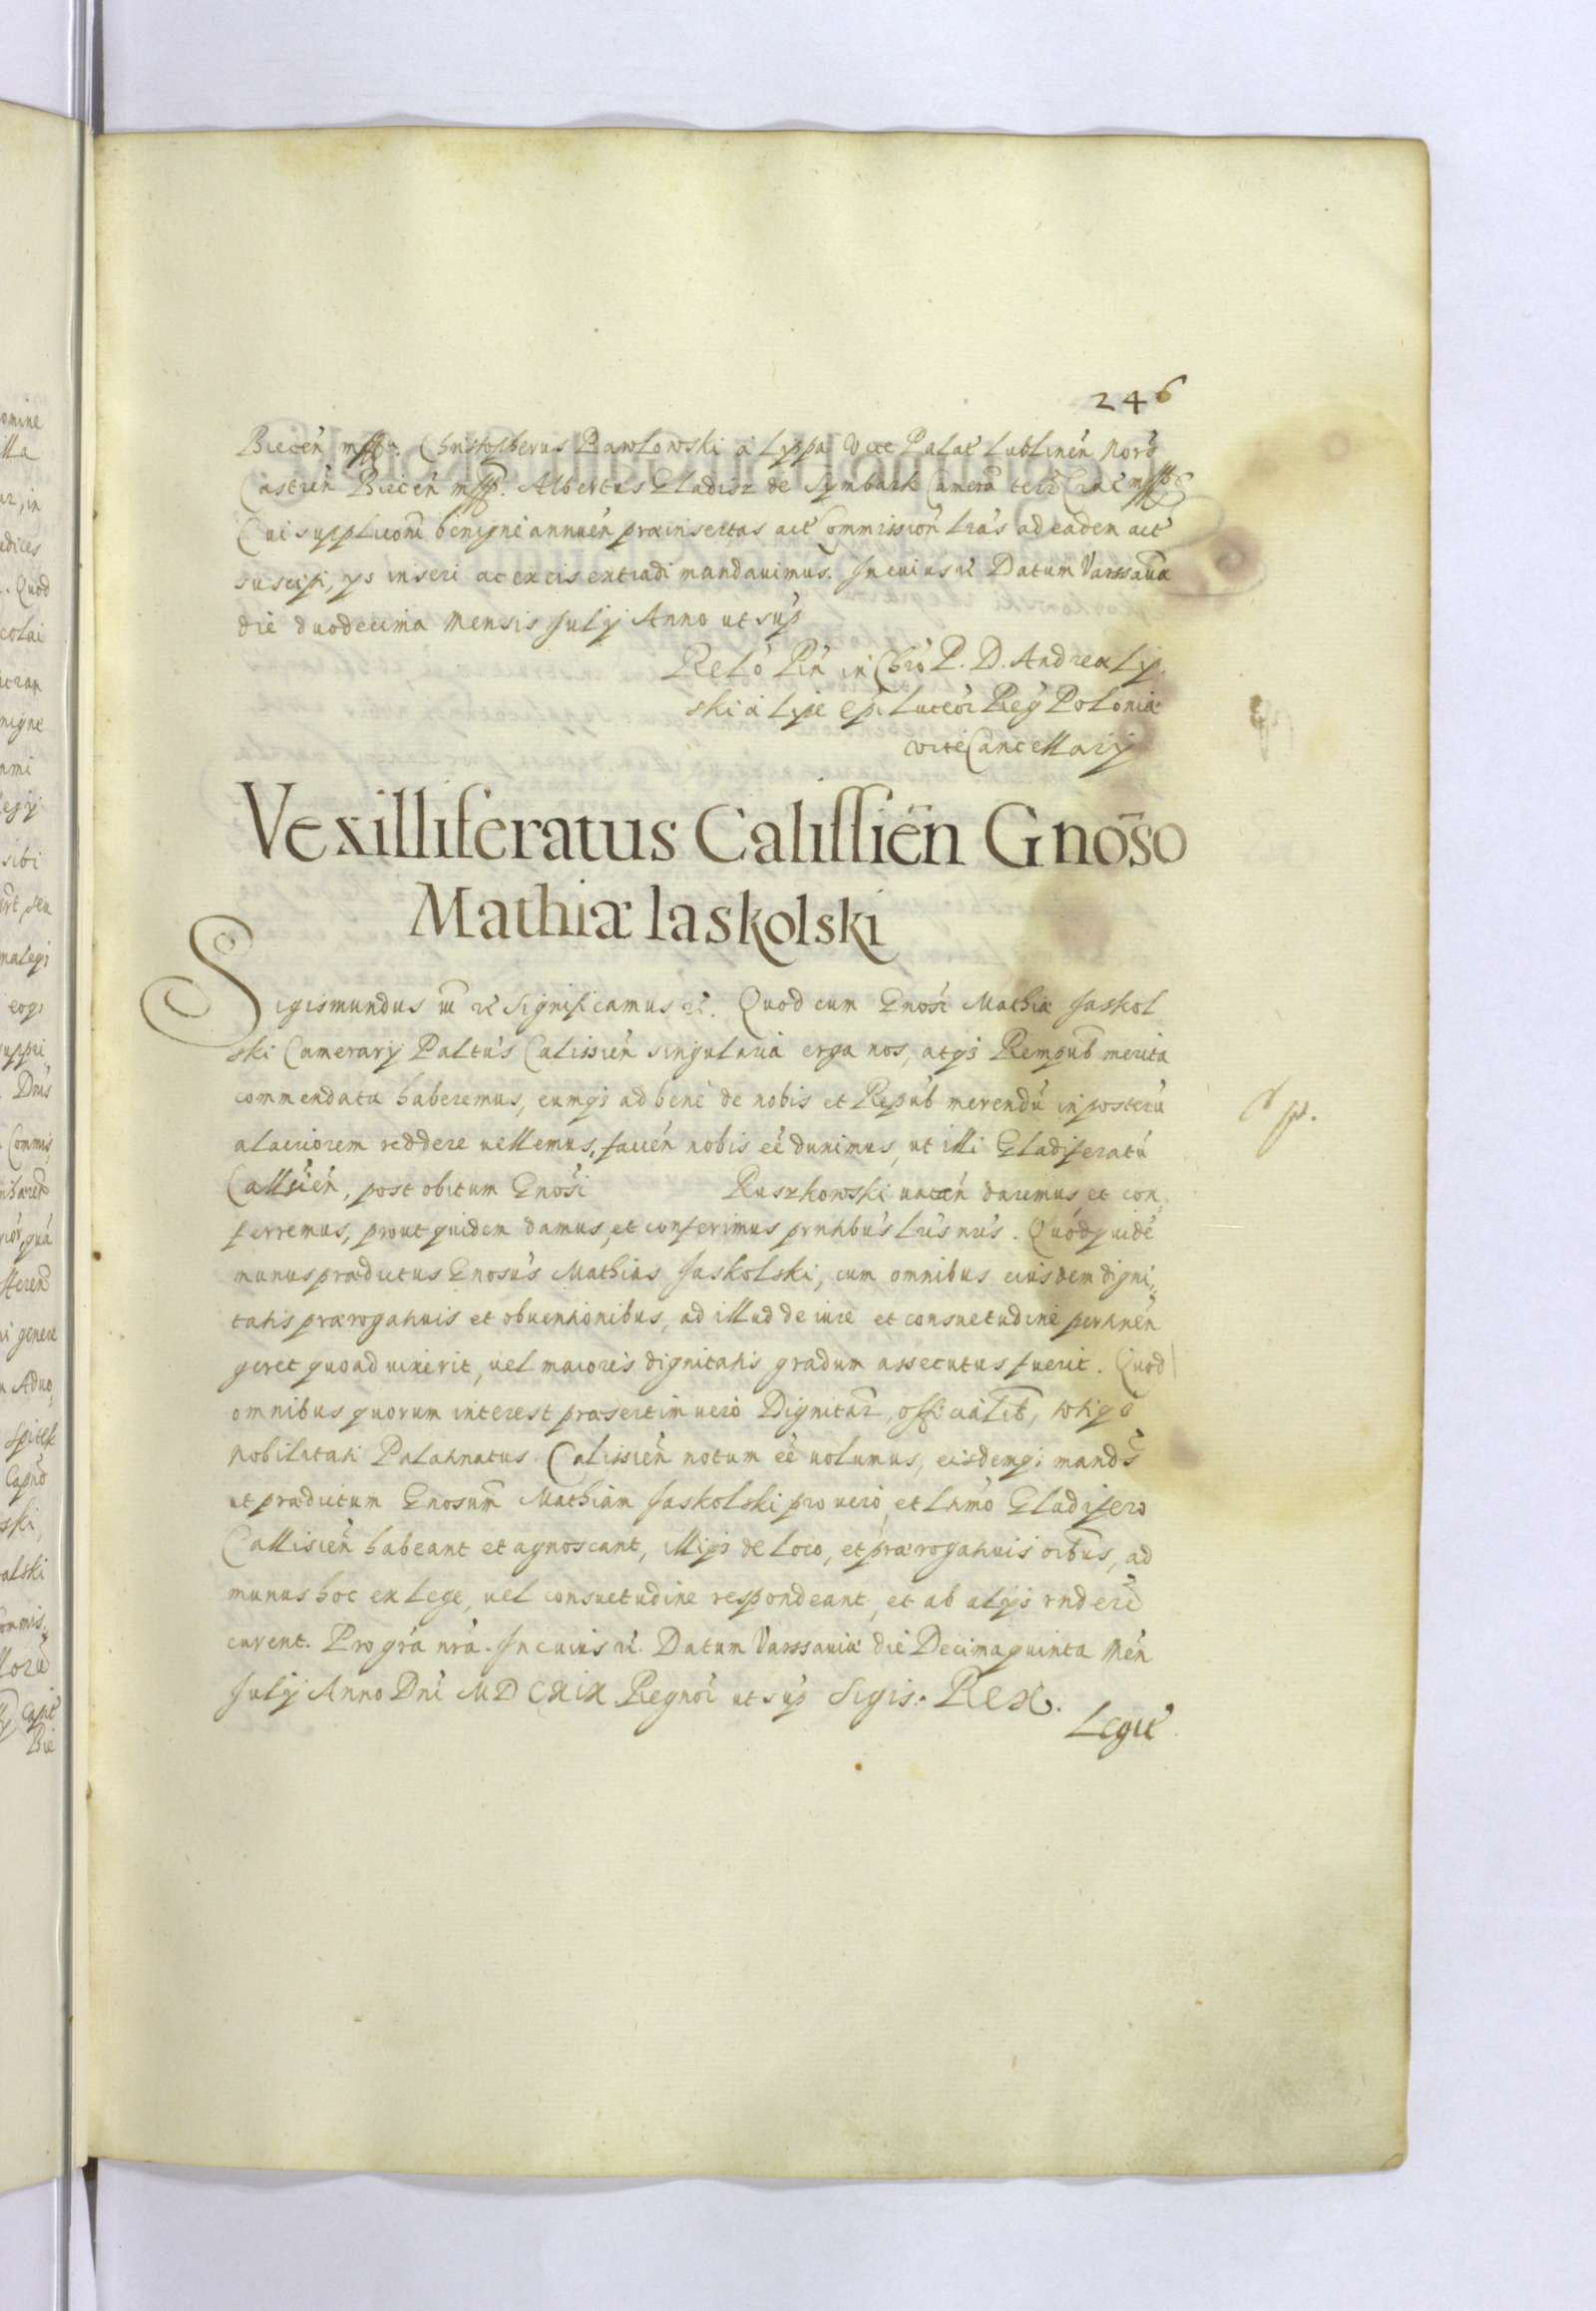 246
Biecen̄ mpp. Christopherus Pawlowski à Lyppa Vice Palat Lublinen̄ Nor̄s
Castren̄ Biecen̄ mpp. Albertus Gladisz de Symbark Camera terr Crac mpp
Cui supplicōni benigne annuen̄ præinsertas act Commission̄ Lrās ad eadem act
suscipi, ys inseri ac ex eis extradi mandauimus. In cuius rei Datum Varssauiæ
die duodecima Mensis Julij Anno ut sup̄
Relō Rn̄ in Chrō P. D. Andreæ Lip
ski à Lipe Ep̄i Luceor̄ Reg̃ Poloniæ
vice Cancellarij
Vexilliferatus Calissien̄ Gnōso
Mathiæ Iaskolski
Sigismundus III rc Significamus rc. Quod cum Gnōsi Mathiæ Jaskol
ski Camerarij Paltūs Calissien̄ singularia erga nos, atq; Rempub merita
commendata haberemus, eumq; ad bene de nobis et Repub merendū in posterū
alacriorem reddere uellemus, facien̄ nobis eē duximus, ut illi Gladiferatū
Callisien̄, post obitum Gnōsi Ruszkowski uacan̄ daremus, et con
ferremus, prout quidem damus, et conferimus prntibūs Lrīs nrīs. Quod quidē
munus prædictus Gnosūs Mathias Jaskolski, cum omnibus eiusdem digni„
tatis prærogatiuis et obuentionibus, ad illud de iure et consuetudine pertinen̄
geret quoad uixerit, uel maioris dignitatis gradum assecutus fuerit. Quod
omnibus quorum interest præsertim uero Dignitar̄, officialib, totiq;
Nobilitati Palatinatus Calissien̄ notum eē uolumus, eisdemq; mands̄
ut prædictum Gnosum̄ Mathiam Jaskolski pro uero, et Ltīmo Gladifero
Callisien̄ habeant et agnoscant, illiq; de loco, et prærogatiuis oibūs, ad
munus hoc ex lege, uel consuetudine respondeant, et ab alijs rnderī
curent. Pro grā nrā. In cuius rei. Datum Varssauiæ die Decima quinta Men̄
Julij Anno Dnī MDCXIX Regnor̄ ut sup̄ Sigis: Rex.
Legit